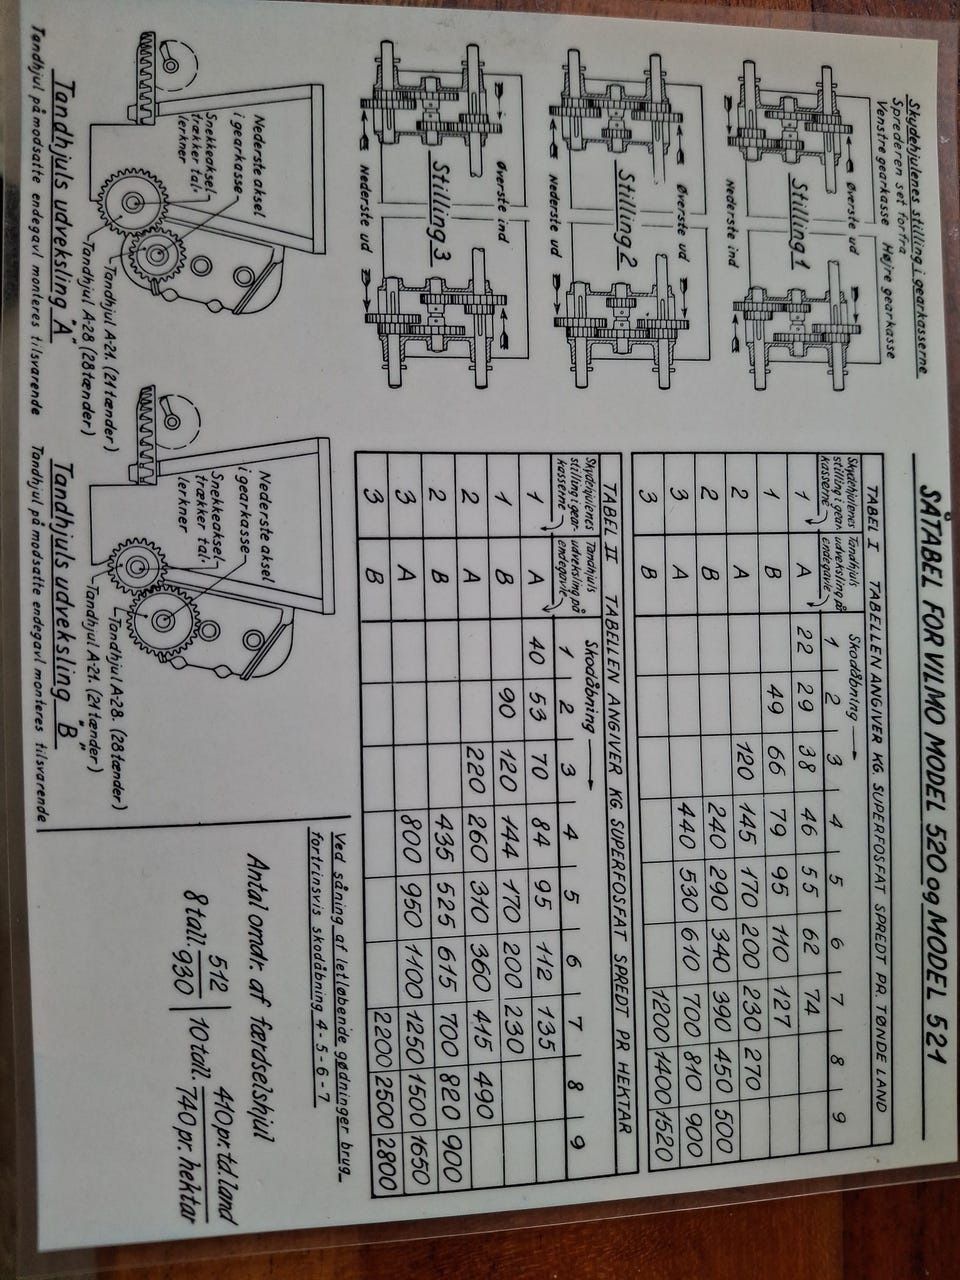 SÅTABEL FOR VILMO MODEL 520 og MODEL 521
Skydehjulenes stilling i gearkasserne
Sprederen set forfra
Venstre gearkasse Højre gearkasse
Øverste ud
Stilling 1
Nederste ind
Øverste ud
Stilling 2
Nederste ud
Øverste ind
Stilling 3
Nederste ud
TABEL I TABELLEN ANGIVER KG SUPERFOSFAT SPREDT PR. TØNDE LAND
Skydehjulenes stilling i gearkasserne Tandhjuls udveksling på endegavle Skodåbning
1 2 3 4 5 6 7 8 9
1 A 22 29 38 46 55 62 74
1 B 49 66 79 95 110 127
2 A 120 145 170 200 230 270
2 B 240 290 340 390 450 500
3 A 440 530 610 700 810 900
3 B 1200 1400 1520
TABEL II TABELLEN ANGIVER KG SUPERFOSFAT SPREDT PR HEKTAR
Skydehjulenes stilling i gearkasserne Tandhjuls udveksling på endegavle Skodåbning
1 2 3 4 5 6 7 8 9
1 A 40 53 70 84 95 112 135
1 B 90 120 144 170 200 230
2 A 220 260 310 360 415 490
2 B 435 525 615 700 820 900
3 A 800 950 1100 1250 1500 1650
3 B 2200 2500 2800
Ved såning af letløbende gødninger brug-
fortrinsvis skodåbning 4-5-6-7
Nederste aksel
i gearkasse
Snekkeaksel
trækker tal-
lerkner
Tandhjul A-21. (21 tænder)
Tandhjul A-28 (28 tænder)
Tandhjuls udveksling "A"
Tandhjul på modsatte endegavl monteres tilsvarende
Nederste aksel
i gearkasse
Snekkeaksel
trækker tal-
lerkner
Tandhjul A-28. (28 tænder)
Tandhjul A-21. (21 tænder)
Tandhjuls udveksling "B"
Tandhjul på modsatte endegavl monteres tilsvarende
Antal omdr. af færdselshjul
8 tall. 512 | 10 tall. 410 pr. td. land
930 | 740 pr. hektar